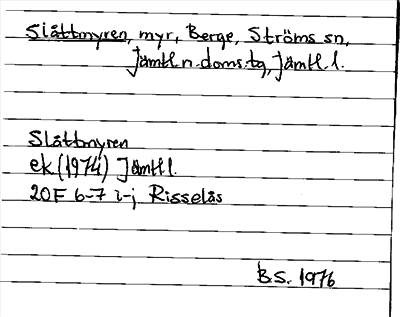 Slåttmyren, myr, Berge, Ströms sn,
Jämtl. n. doms. tg, Jämtl. l.
Slåttmyren
ek (1974) Jämtl l.
20F 6-7 i-j Risselås
B.S. 1976